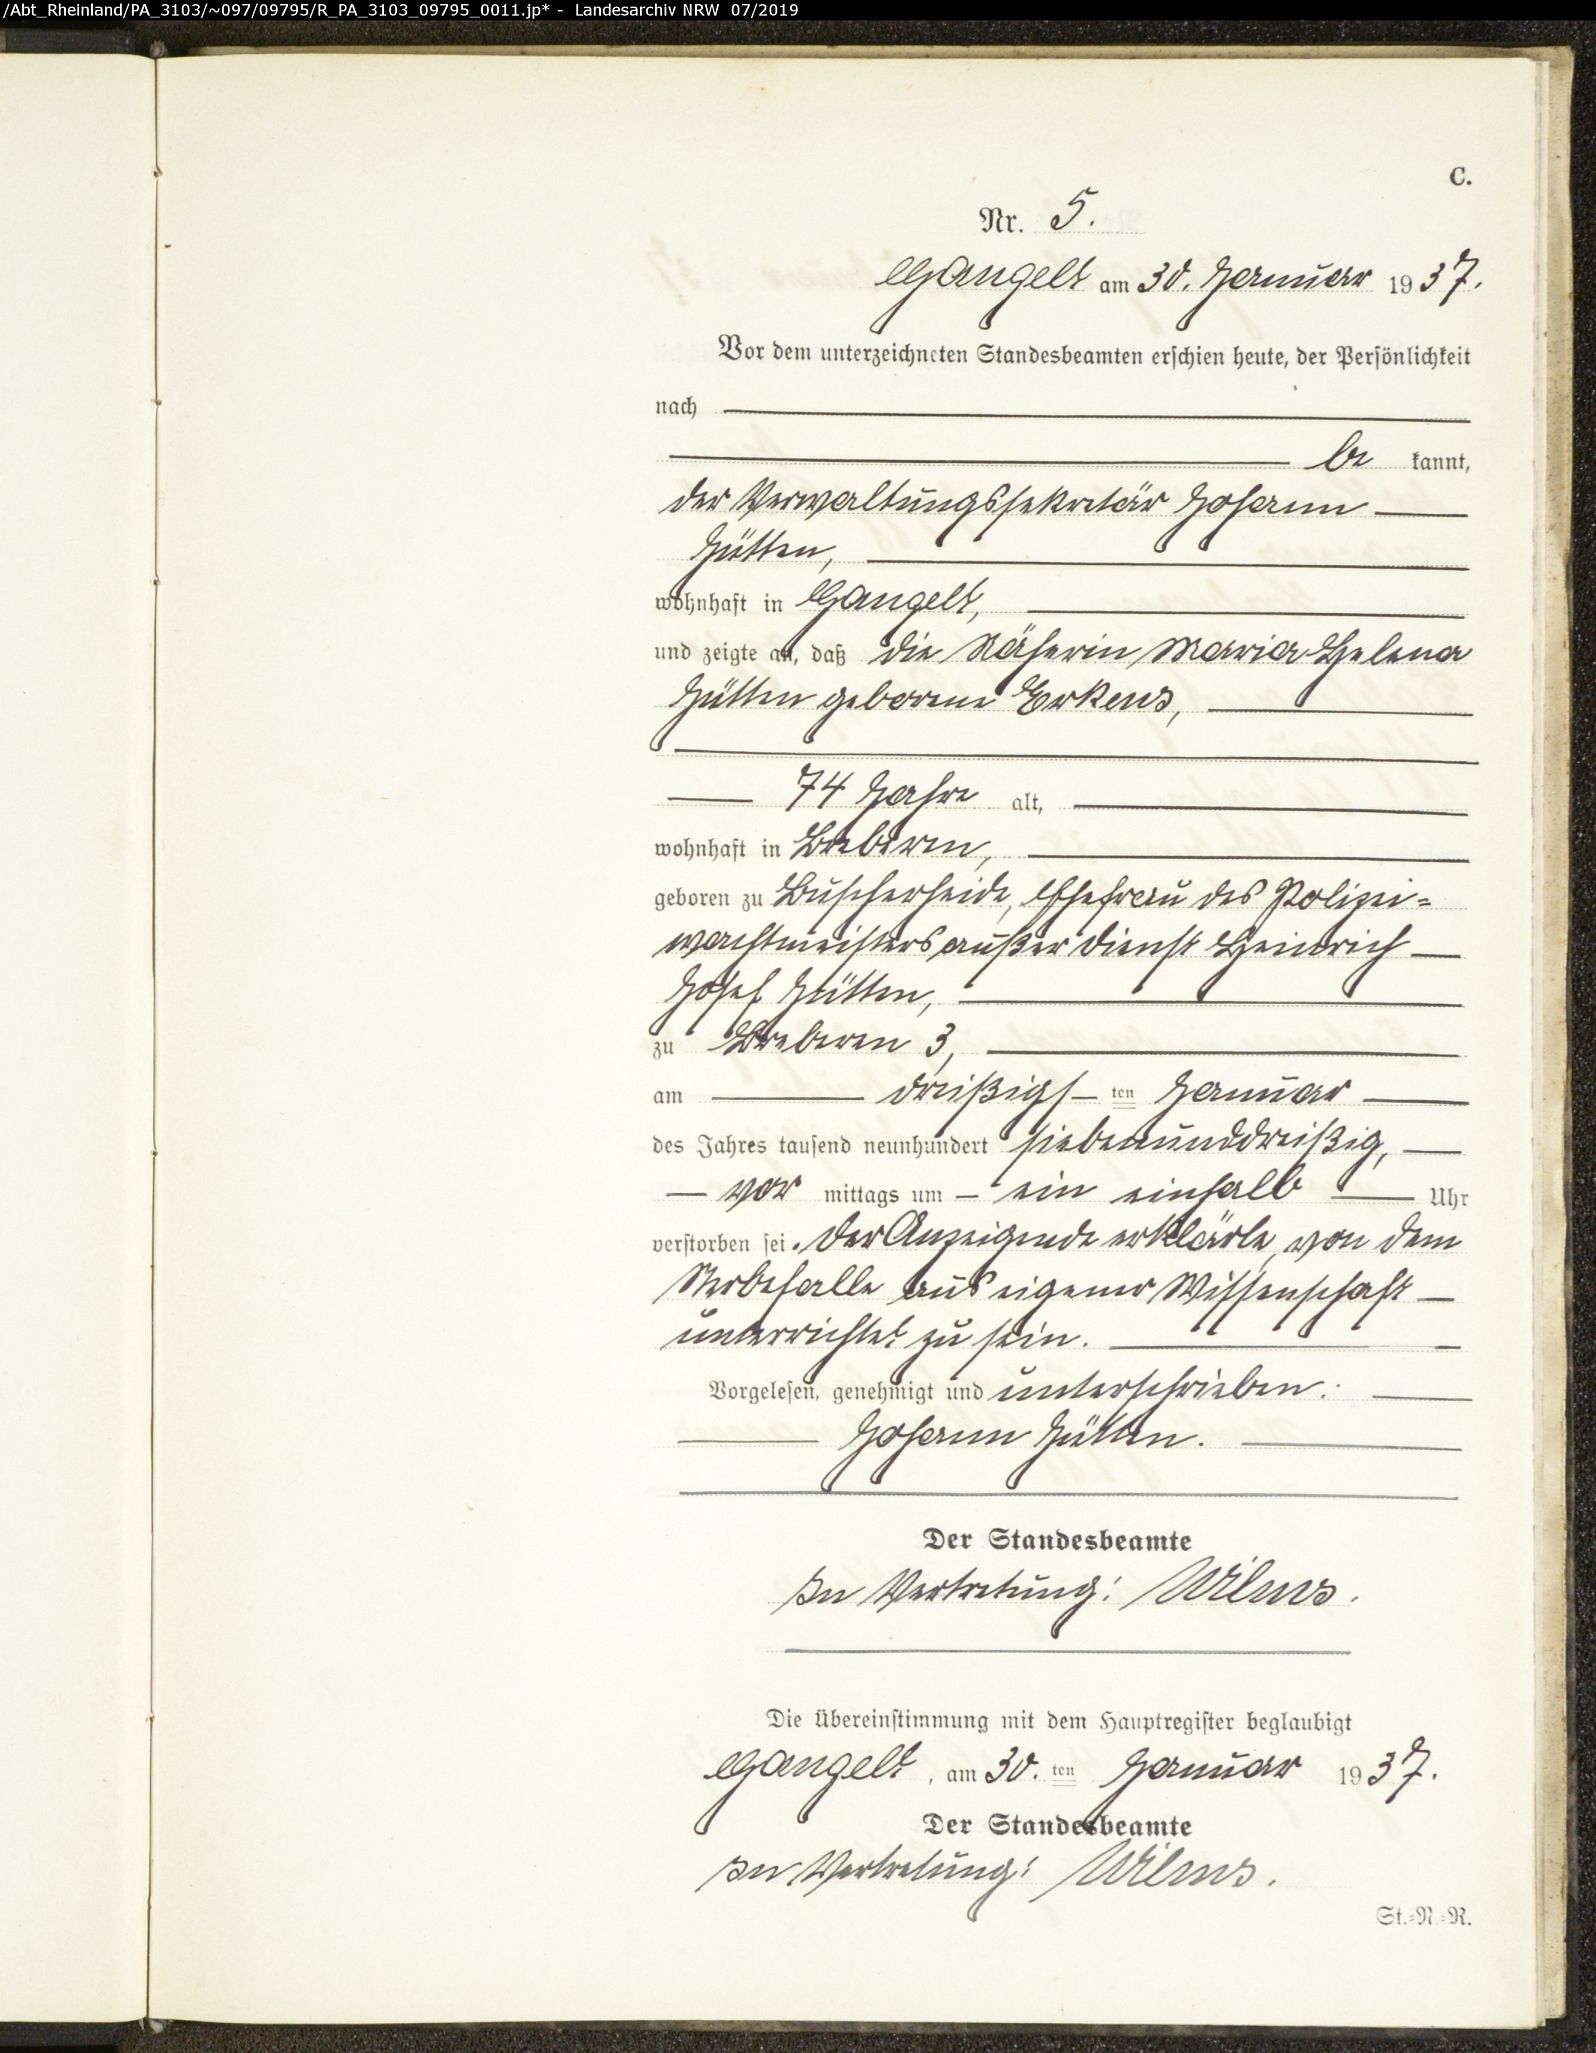 /Abt_Rheinland/PA_3103/~097/09795/R_PA_3103_09795_0011.jp* - Landesarchiv NRW 07/2019
C.
Nr. 5.
Gangelt am 30. Januar 1937.
Vor dem unterzeichneten Standesbeamten erschien heute, der Persönlichkeit
nach
be kannt,
der Verwaltungssekretär Johann
Jütten,
wohnhaft in Gangelt,
und zeigte an, daß die Näherin Maria Helena
Jütten geborene Erkens,
74 Jahre alt,
wohnhaft in Breberen,
geboren zu Buscherheide, Ehefrau des Polizei=
wachtmeisters außer Dienst Heinrich
Josef Jütten,
zu Breberen 3,
am dreißigs ten Januar
des Jahres tausend neunhundert siebenunddreißig,
vor mittags um ein einhalb Uhr
verstorben sei. Der Anzeigende erklärte, von dem
Sterbefalle aus eigener Wissenschaft
unterrichtet zu sein.
Vorgelesen, genehmigt und unterschrieben.
Johann Jütten.
Der Standesbeamte
In Vertretung: Wilms.
Die Übereinstimmung mit dem Hauptregister beglaubigt
Gangelt, am 30. ten Januar 1937.
Der Standesbeamte
In Vertretung: Wilms.
St.=N.=R.